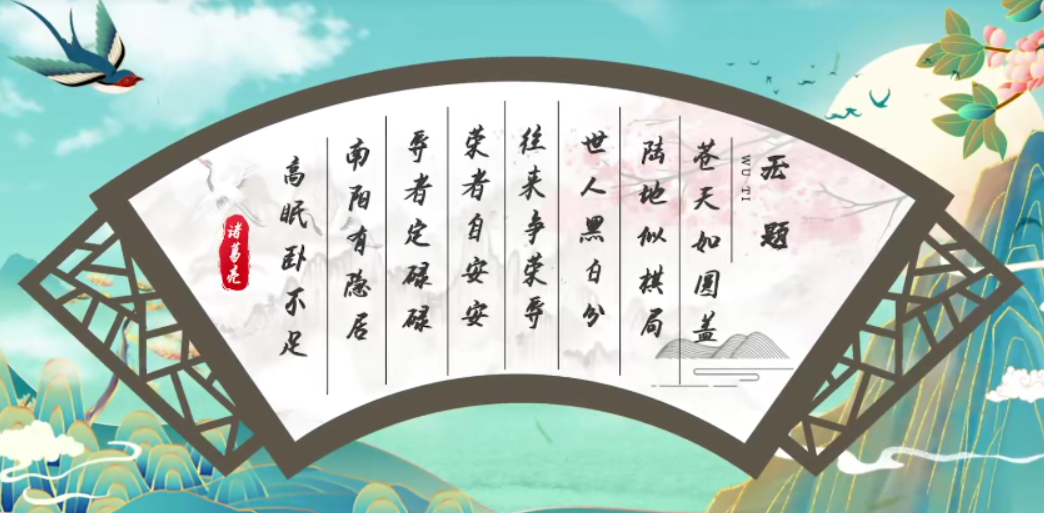 无题
WU TI
苍天如圆盖
陆地似棋局
世人黑白分
往来争荣辱
荣者自安安
辱者定碌碌
南阳有隐居
高眠卧不足
诸葛亮